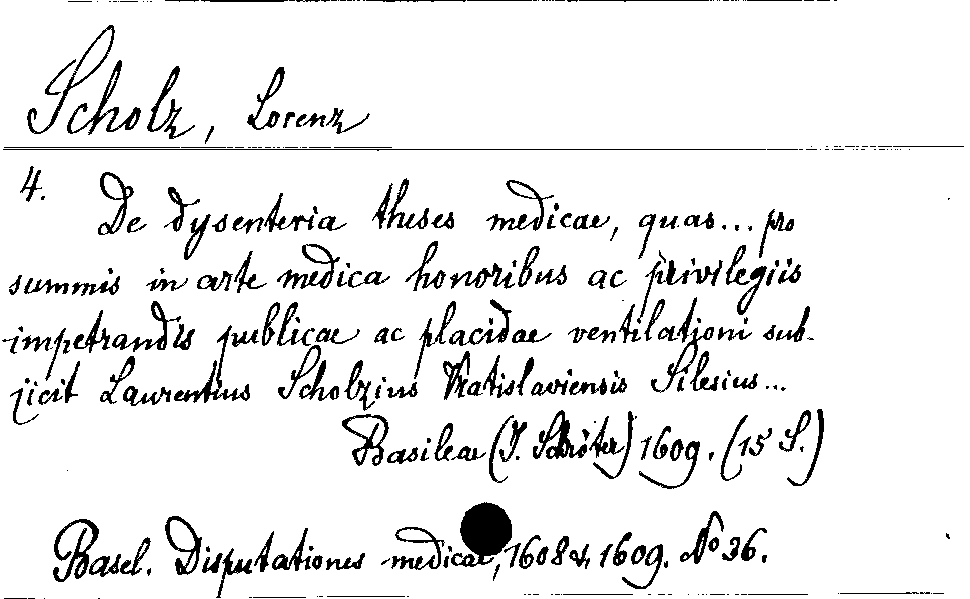 Scholz, Lorenz
4.
De dysenteria theses medicae, quas... pro
summis in arte medica honoribus ac privilegiis
impetrandis publicae ac placidae ventilationi sub-
jicit Laurentius Scholzius Vratislaviensis Silesius...
Basileae (J. Schröter) 1609. (15 S.)
Basel. Disputationes medicae, 1608 & 1609. No 36.